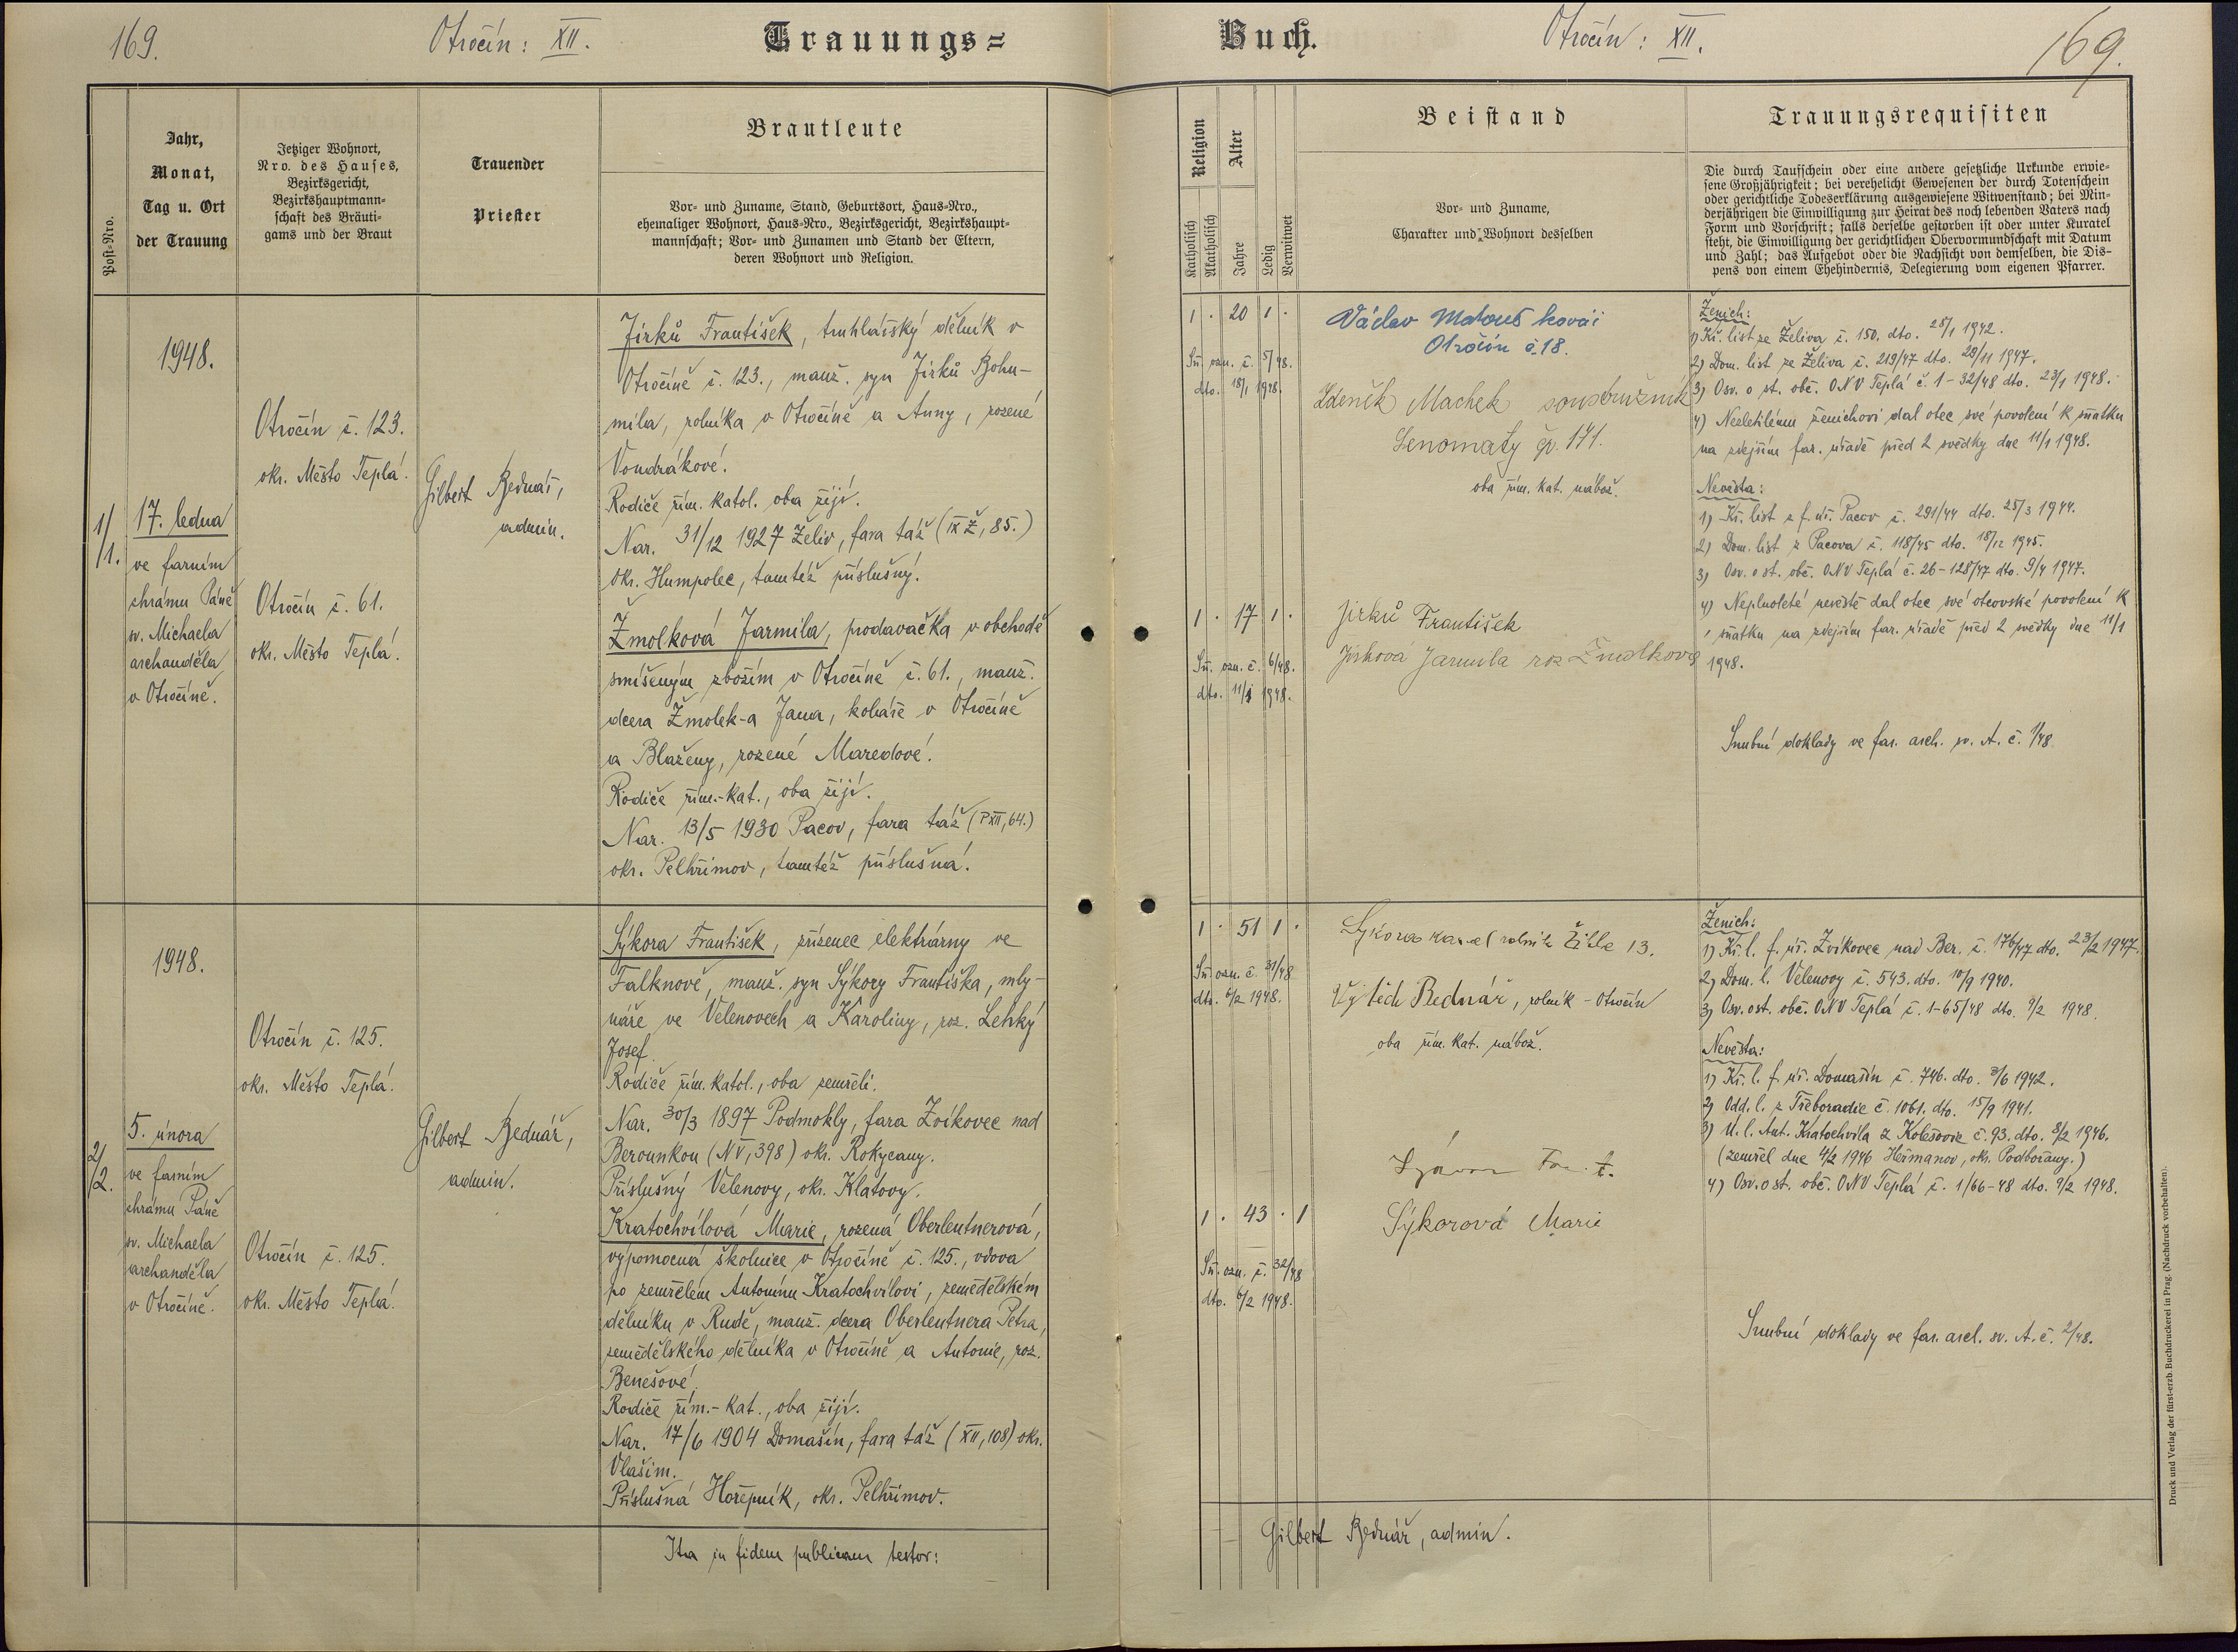 169.
Otročín: XII.
Trauungs=
Buch.
Otročín: XII.
169.
Post-Nro.
Jahr,
Monat,
Tag u. Ort
der Trauung
Jetziger Wohnort,
Nro. des Hauses,
Bezirksgericht,
Bezirkshauptmann-
schaft des Bräuti-
gams und der Braut
Trauender
Priester
Brautleute
Vor- und Zuname, Stand, Geburtsort, Haus-Nro.,
ehemaliger Wohnort, Haus-Nro., Bezirksgericht, Bezirkshaupt-
mannschaft; Vor- und Zunamen und Stand der Eltern,
deren Wohnort und Religion.
Religion
Katholisch
Akatholisch
Alter
Jahre
Ledig
Verwitwet
Beistand
Vor- und Zuname,
Charakter und Wohnort desselben
Trauungsrequisiten
Die durch Taufschein oder eine andere gesetzliche Urkunde erwie-
sene Großjährigkeit; bei verehelicht Gewesenen der durch Totenschein
oder gerichtliche Todeserklärung ausgewiesene Witwenstand; bei Min-
derjährigen die Einwilligung zur Heirat des noch lebenden Vaters nach
Form und Vorschrift; falls derselbe gestorben ist oder unter Kuratel
steht, die Einwilligung der gerichtlichen Obervormundschaft mit Datum
und Zahl; das Aufgebot oder die Nachsicht von demselben, die Dis-
pens von einem Ehehindernis, Delegierung vom eigenen Pfarrer.
1/1.
1948.
17. ledna
ve farním
chrámu Páně
sv. Michaela
archanděla
v Otročíně.
Otročín č. 123.
okr. Město Teplá.
Otročín č. 61.
okr. Město Teplá.
Gilbert Bednář,
admin.
Jirků František, truhlářský dělník v
Otročíně č. 123., manž. syn Jirků Bohu-
mila, rolníka v Otročíně a Anny, rozené
Vondrákové.
Rodiče řím. katol. oba žijí.
Nar. 31/12 1927 Želiv, fara táž (IX Ž, 85.)
okr. Humpolec, tamtéž příslušný.
Žmolková Jarmila, prodavačka v obchodě
smíšeným zbožím v Otročíně č. 61., manž.
dcera Žmolek-a Jana, koláře v Otročíně
a Blaženy, rozené Maredové.
Rodiče řím.-kat., oba žijí.
Nar. 13/5 1930 Pacov, fara táž (P XII, 64.)
okr. Pelhřimov, tamtéž příslušná.
1 · 20 1 ·
Sň. ozn. č. 5/48.
dto. 18/1 1948.
1 · 17 1 ·
Sň. ozn. č. 6/48.
dto. 11/1 1948.
Václav Matouš kovář
Otročín č. 18.
Zdeněk Machek soustružník
Senomaty čp. 171.
oba řím. kat. nábož.
Jirků František
Jirková Jarmila roz Žmolková
Ženich:
1) Kř. list ze Želiva č. 150. dto. 28/1 1942.
2) Dom. list ze Želiva č. 219/47 dto. 29/11 1947.
3) Osv. o st. obč. ONV Teplá č. 1-32/48 dto. 23/1 1948.
4) Nezletilému ženichovi dal otec své povolení k sňatku
na zdejším far. úřadě před 2 svědky dne 11/1 1948.
Nevěsta:
1) Kř. list z f. úř. Pacov č. 291/44 dto. 25/3 1944.
2) Dom. list z Pacova č. 118/45 dto. 18/12 1945.
3) Osv. o st. obč. ONV Teplá č. 26-128/47 dto. 9/4 1947.
4) Neplnoleté nevěstě dal otec své otcovské povolení k
sňatku na zdejším far. úřadě před 2 svědky dne 11/1
1948.
Snubní doklady ve far. arch. sv. A. č. 1/48
2/2.
1948.
5. února
ve farním
chrámu Páně
sv. Michaela
archanděla
v Otročíně.
Otročín č. 125.
okr. Město Teplá.
Otročín č. 125.
okr. Město Teplá.
Gilbert Bednář,
admin.
Sýkora František, zřízenec elektrárny ve
Falknově, manž. syn Sýkory Františka, mly-
náře ve Velenovech a Karoliny, roz. Lehký
Josef.
Rodiče řím. katol., oba zemřeli.
Nar. 30/3 1897 Podmokly, fara Zvíkovec nad
Berounkou (N V, 398) okr. Rokycany.
Příslušný Velenovy, okr. Klatovy.
Kratochvílová Marie, rozená Oberleutnerová,
výpomocná školnice v Otročíně č. 125., vdova
po zemřelém Antonínu Kratochvílovi, zemědělském
dělníku v Rudě, manž. dcera Oberleutnera Petra,
zemědělského dělníka v Otročíně a Antonie, roz.
Benešové.
Rodiče řím.-kat., oba žijí.
Nar. 17/6 1904 Domašín, fara táž (XII, 108) okr.
Vlašim.
Příslušná Hořepník, okr. Pelhřimov.
1 · 51 1 ·
Sň. ozn. č. 31/48
dto. 6/2 1948.
1 · 43 · 1
Sň. ozn. č. 32/48
dto. 6/2 1948.
Sykora Karel rolník Žihle 13.
Vojtěch Bednář, rolník - Otročín
oba řím. kat. nábož.
Sýkorová Marie
Ženich:
1) Kř. l. f. úř. Zvíkovec nad Ber. č. 176/47 dto. 23/2 1947.
2) Dom. l. Velenovy č. 543. dto. 10/9 1940.
3) Osv. o st. obč. ONV Teplá č. 1-65/48 dto. 9/2 1948.
Nevěsta:
1) Kř. l. f. úř. Domašín č. 746. dto. 3/6 1942.
2) Odd. l. z Třeboradic č. 1061. dto. 15/9 1941.
3) Ú. l. Ant. Kratochvíla z Kolešovic č. 93. dto. 8/2 1946.
(zemřel dne 4/2 1946 Heřmanov, okr. Podbořany.)
4) Osv. o st. obč. ONV Teplá č. 1/66-48 dto. 9/2 1948.
Snubní doklady ve far. arch. sv. A. č. 2/48.
Ita in fidem publicam testor:
Gilbert Bednář, admin.
Druck und Verlag der fürst-erzb. Buchdruckerei in Prag. (Nachdruck vorbehalten).